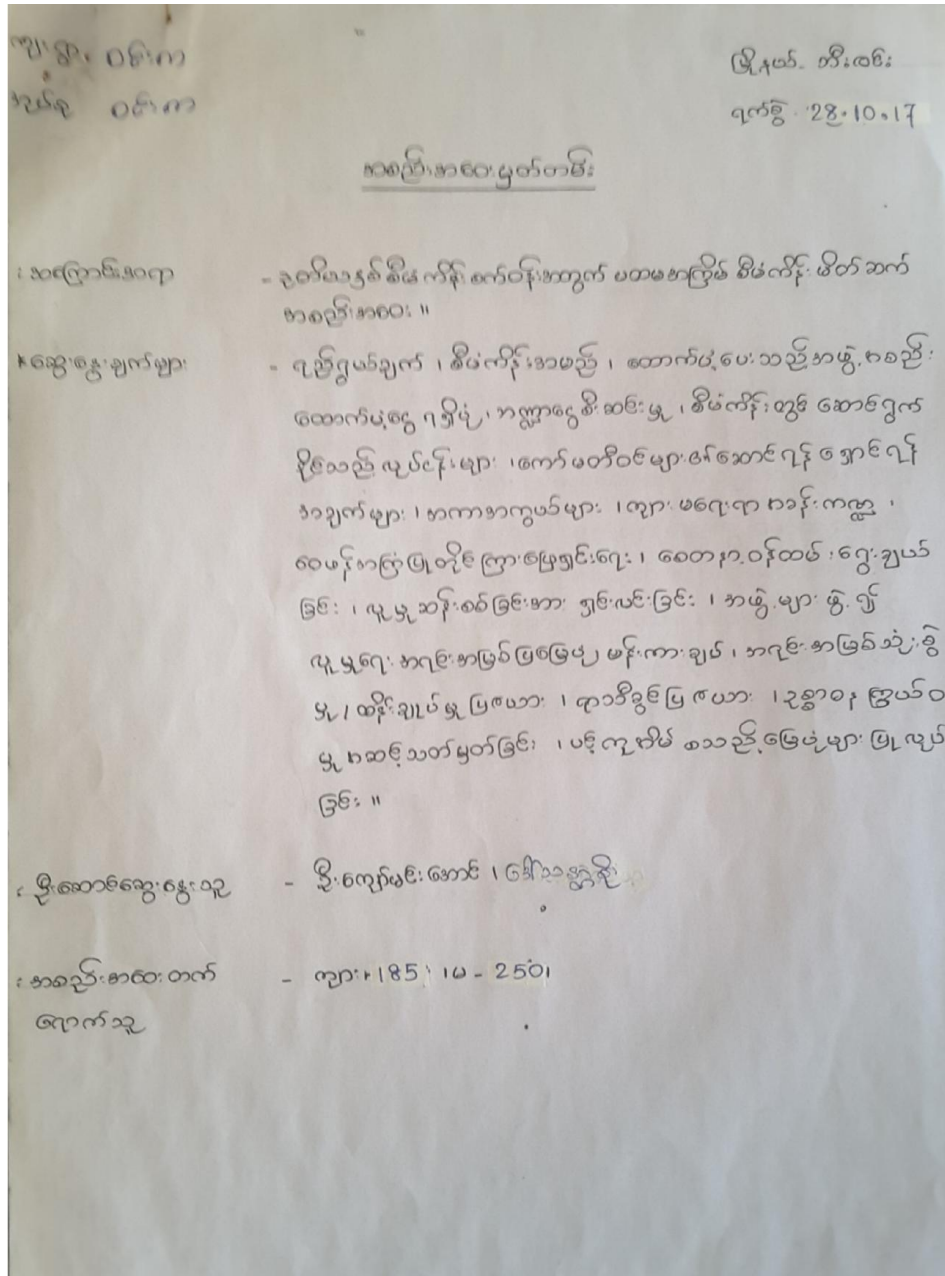 ကျေးရွာ ဝင်းကာ
အုပ်စု ဝင်းကာ
မြို့နယ် - ဘီးလင်း
ရက်စွဲ - 28.10.17
အစည်းအဝေးမှတ်တမ်း
အကြောင်းအရာ - ဒုတိယနှစ်စီမံကိန်းစက်ဝန်းအတွက် ပထမအကြိမ် စီမံကိန်း မိတ်ဆက်
အစည်းအဝေး ။
* ဆွေးနွေးချက်များ - ရည်ရွယ်ချက် ၊ စီမံကိန်းအမည် ၊ ထောက်ပံ့ပေးသည့်အဖွဲ့အစည်း
ထောက်ပံ့ငွေ ရရှိပုံ ၊ ဘဏ္ဍာငွေစီးဆင်းမှု ၊ စီမံကိန်းတွင် ဆောင်ရွက်
နိုင်သည့် လုပ်ငန်းများ ၊ ကော်မတီဝင်များ ဆောင်ရန် ရှောင်ရန်
အချက်များ ၊ အကာအကွယ်များ ၊ ကျား မရေးရာ အခန်းကဏ္ဍ ၊
ဝေဖန်အကြံပြုတိုင်ကြားဖြေရှင်းရေး ၊ စေတနာ့ဝန်ထမ်း ရွေးချယ်
ခြင်း ၊ လူမှုဆန်းစစ်ခြင်းအား ရှင်းလင်းခြင်း ၊ အဖွဲ့များ ဖွဲ့၍
လူမှုရေး အရင်းအမြစ်ပြမြေပုံ၊ ပန်းကားချပ် ၊ အရင်းအမြစ်သုံးစွဲ
မှု ၊ ထိန်းချုပ်မှုပြဇယား ၊ ရာသီခွင်ပြဇယား ၊ ဥစ္စာဓန ကြွယ်ဝ
မှုအဆင့်သတ်မှတ်ခြင်း ၊ ပင့်ကူအိမ် စသည့်မြေပုံများ ပြုလုပ်
ခြင်း ။
ဦးဆောင်ဆွေးနွေးသူ - ဦးကျော်မင်းအောင် ၊
အစည်းအဝေးတက် - ကျား - 185 ၊ မ - 250၊
ရောက်သူ